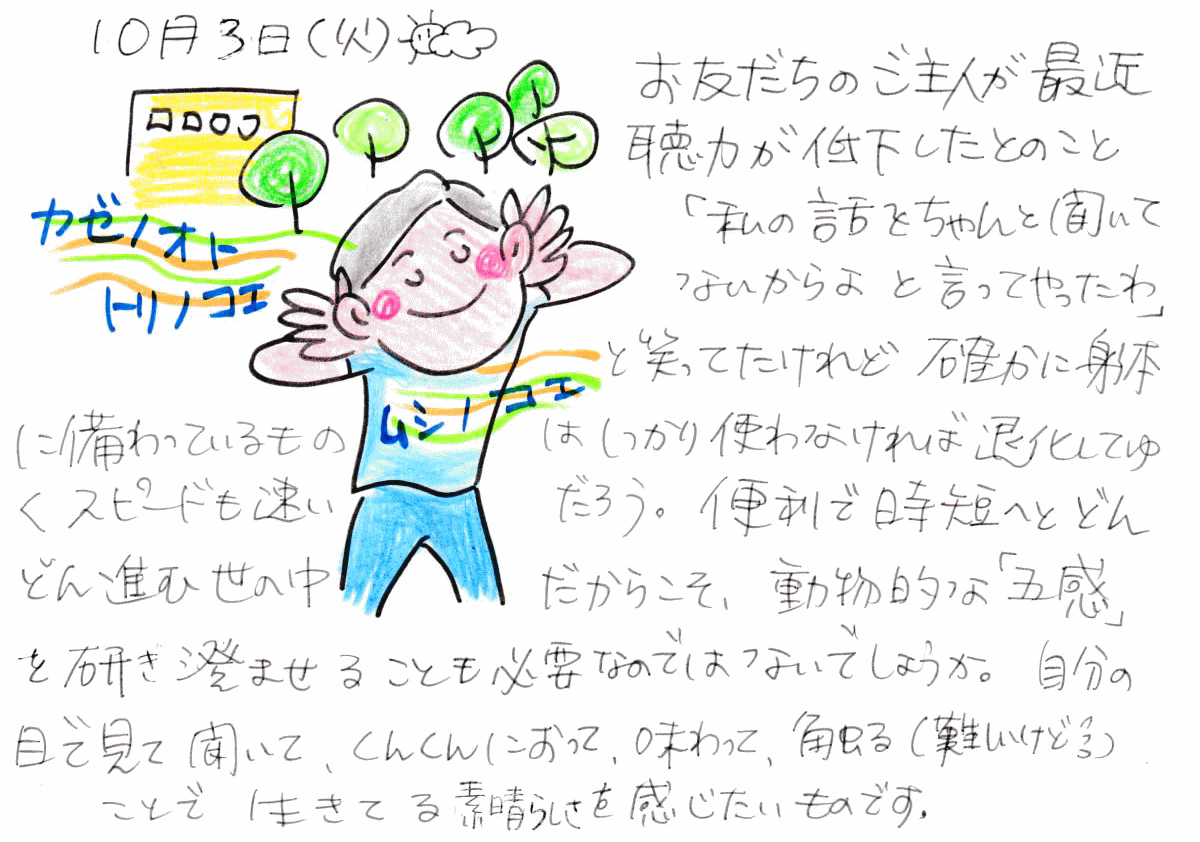 10月3日(火)
お友だちのご主人が最近
聴力が低下したとのこと
「私の話をちゃんと聞いて
ないからよと言ってやったわ」
と笑ってたけれど確かに身体
に備わっているものはしっかり使わなければ退化してゆ
くスピードも速いだろう。便利で時短へとどん
どん進む世の中だからこそ、動物的な「五感」
を研ぎ澄ませることも必要なのではないでしょうか。自分の
目で見て聞いて、くんくんにおって、味わって、触る(難しいけどネ)
ことで生きてる素晴らしさを感じたいものです。
カゼノオト
トリノコエ
ムシノコエ